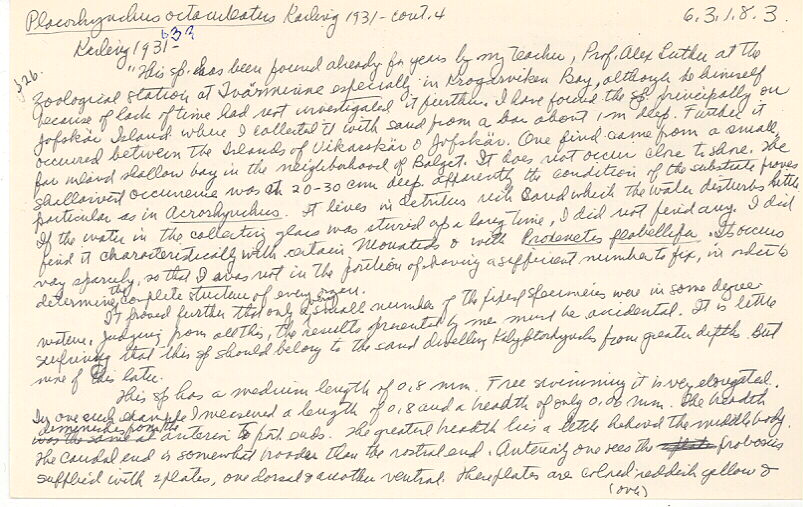 Placorhynchus octaculeatus Karling 1931 - cont. 4 6.3.1.8.3.
Karling 1931 - 633
S26. "This sp. has been found already for years by my teacher, Prof. Alex Luther at the
Zoological station at Tvärminne especially in Krogarviken Bay, although he himself
because of lack of time had not investigated it further. I have found the sp. principally on
Jofskär Island where I collected it with sand from a bar about 1 m deep. Further it
occured between the Islands of Vikarskär & Jofskär. One find came from a small,
far inland shallow bay in the neighborhood of Balget. It does not occur close to shore. The
shallowest occurence was at 20-30 cm deep. Apparently the condition of the substrate proves
particular as in Acrorhynchus. It lives in detritus rich sand which the water disturbs little
If the water in the collecting glass was stirred up a long time, I did not find any. I did
find it characteristically with certain Monotids & with Proxenetes flabellifer. It occurs
very sparsely, so that I was not in the position of having a sufficient number to fix, in order to
determine the complete structure of every organ.
It proved further that only a very small number of the fixed specimens were in some degree
mature. Judging from all this, the results presented by me must be accidental. It is little
surprising that this sp should belong to the sand dwelling Kalyptorhynchs from greater depths. But
more of this later.
This sp has a medium length of 0,8 mm. Free swimming it is very elongated.
In one such example I measured a length of 0,8 and a breadth of only 0,06 mm. The breadth
diminishes from the
was the same at anterior to post ends. The greatest breadth lies a little behind the middle body.
The caudal end is somewhat broader than the rostral end. Anteriorly one sees the proboscis
supplied with 2 plates, one dorsal & another ventral. These plates are colored reddish yellow &
(over)